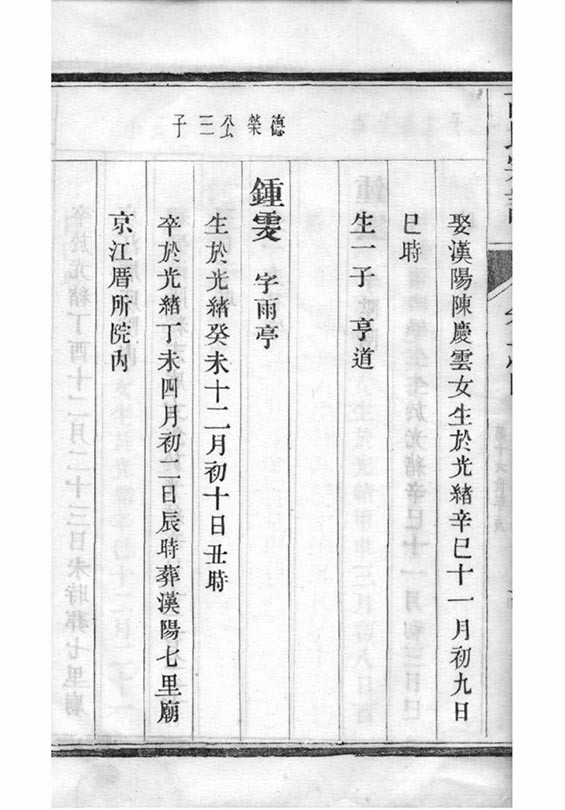 德榮公三子
娶漢陽陳慶雲女生於光緒辛巳十一月初九日
巳時
生一子 亨道
鍾雯 字雨亭
生於光緒癸未十二月初十日丑時
卒於光緒丁未四月初二日辰時葬漢陽七里廟
京江厝所院內